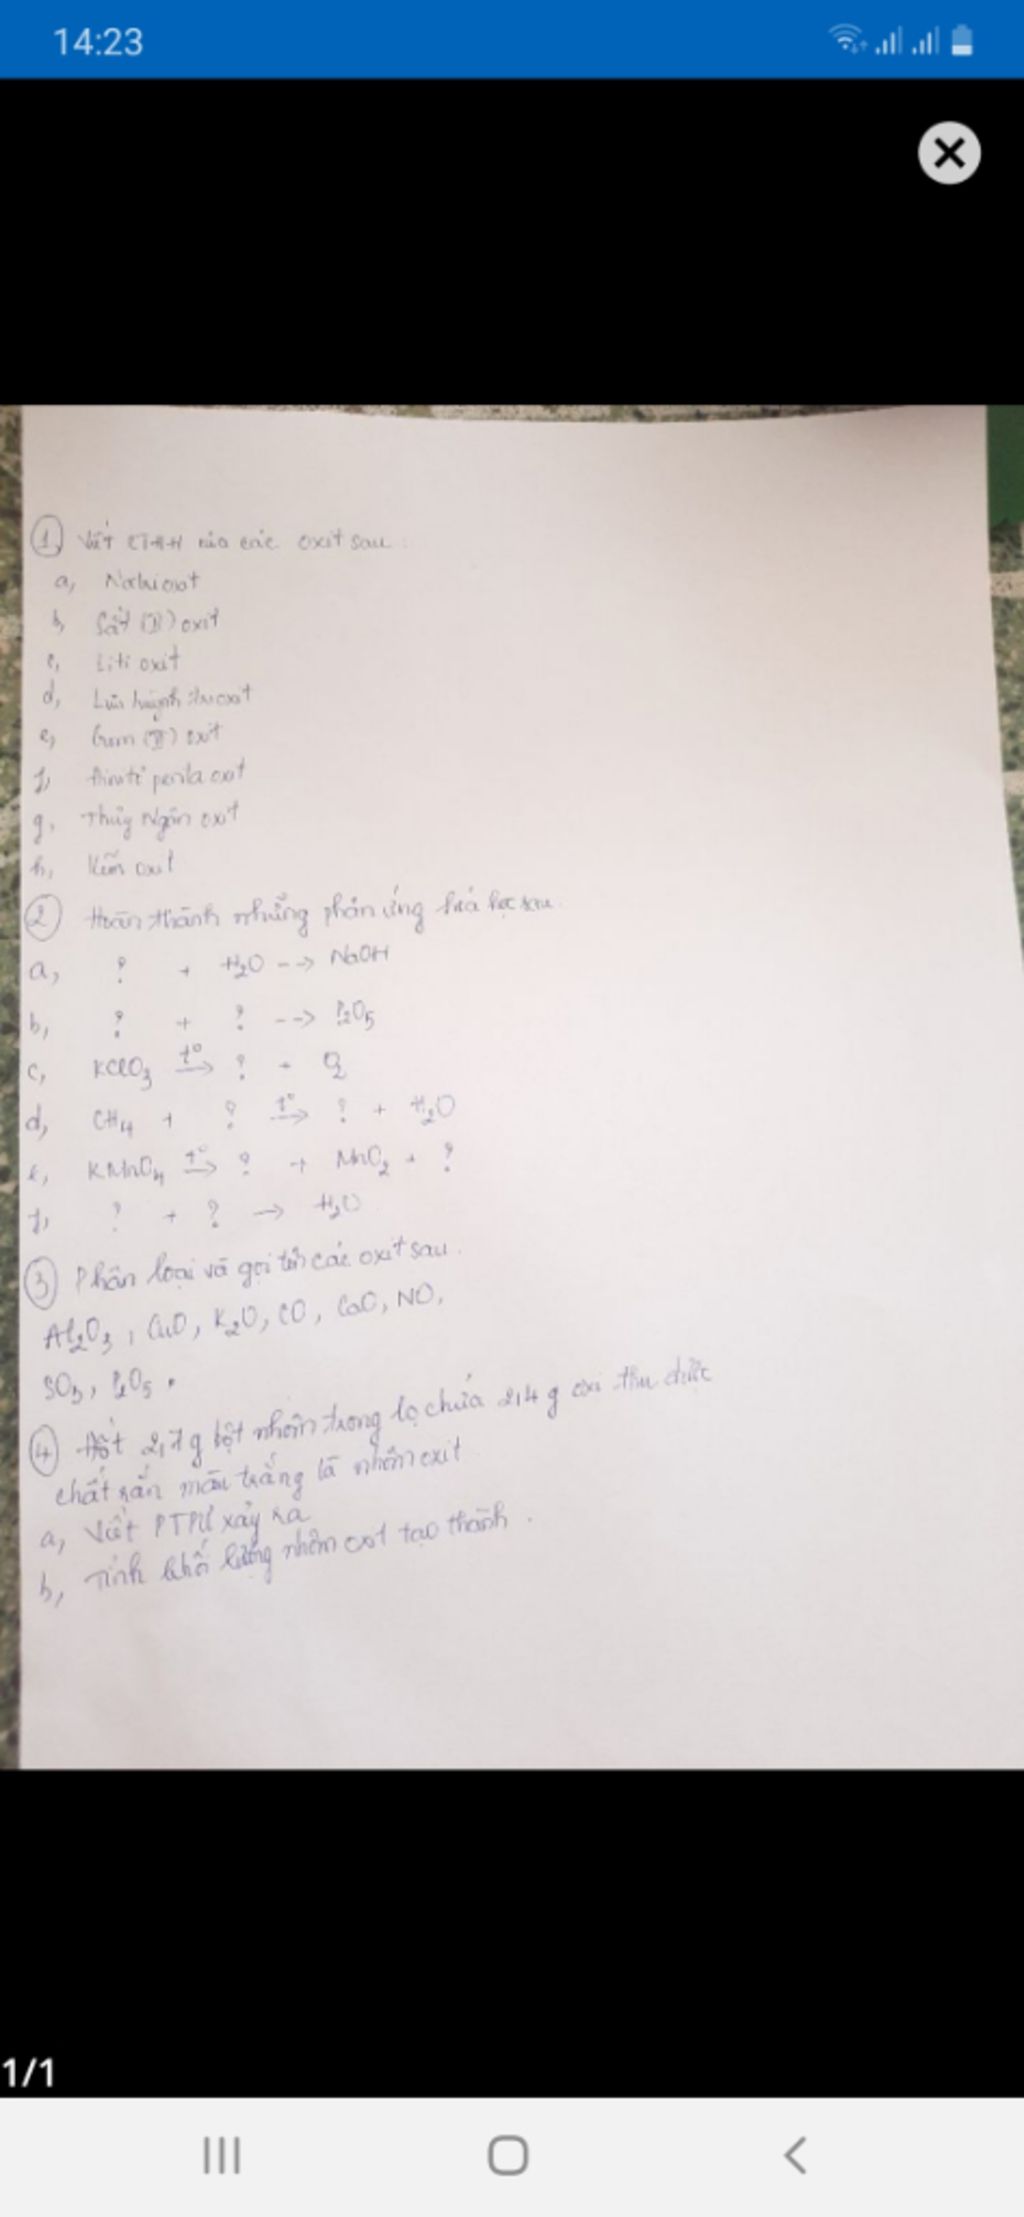 14:23
① Viết CTHH của các oxit sau:
a, Natri oxit
b, Sắt (II) oxit
c, Liti oxit
d, Lưu huỳnh trioxit
e, Crom oxit
f, penta oxit
g, Thủy Ngân oxit
h, Kẽm oxit
② Hoàn thành những phản ứng hoá học sau.
a, ? + H₂O --> NaOH
b, ? + ? --> P₂O₅
c, KClO₃ t° → ? + O₂
d, CH₄ + ? t° → ? + H₂O
e, KMnO₄ t° → ? + MnO₂ + ?
f, ? + ? → H₂O
③ Phân loại và gọi tên các oxit sau.
Al₂O₃, CuO, K₂O, CO, CaO, NO,
SO₃, P₂O₅.
④ Đốt 2,7g bột nhôm trong lọ chứa 2,4g oxi thu được
chất rắn màu trắng là nhôm oxit
a, Viết PTPƯ xảy ra
b, Tính khối lượng nhôm oxit tạo thành.
1/1